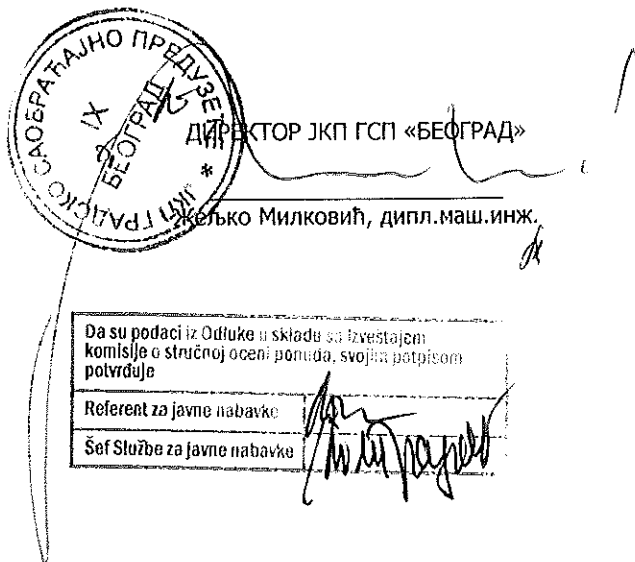 ЈКП ГРАДСКО САОБРАЋАЈНО ПРЕДУЗЕЋЕ *
IX
БЕОГРАД
ДИРЕКТОР ЈКП ГСП «БЕОГРАД»
Жељко Милковић, дипл.маш.инж.
Da su podaci iz Odluke u skladu sa Izveštajem
komisije o stručnoj oceni ponuda, svojim potpisom
potvrđuje
Referent za javne nabavke
Šef Službe za javne nabavke